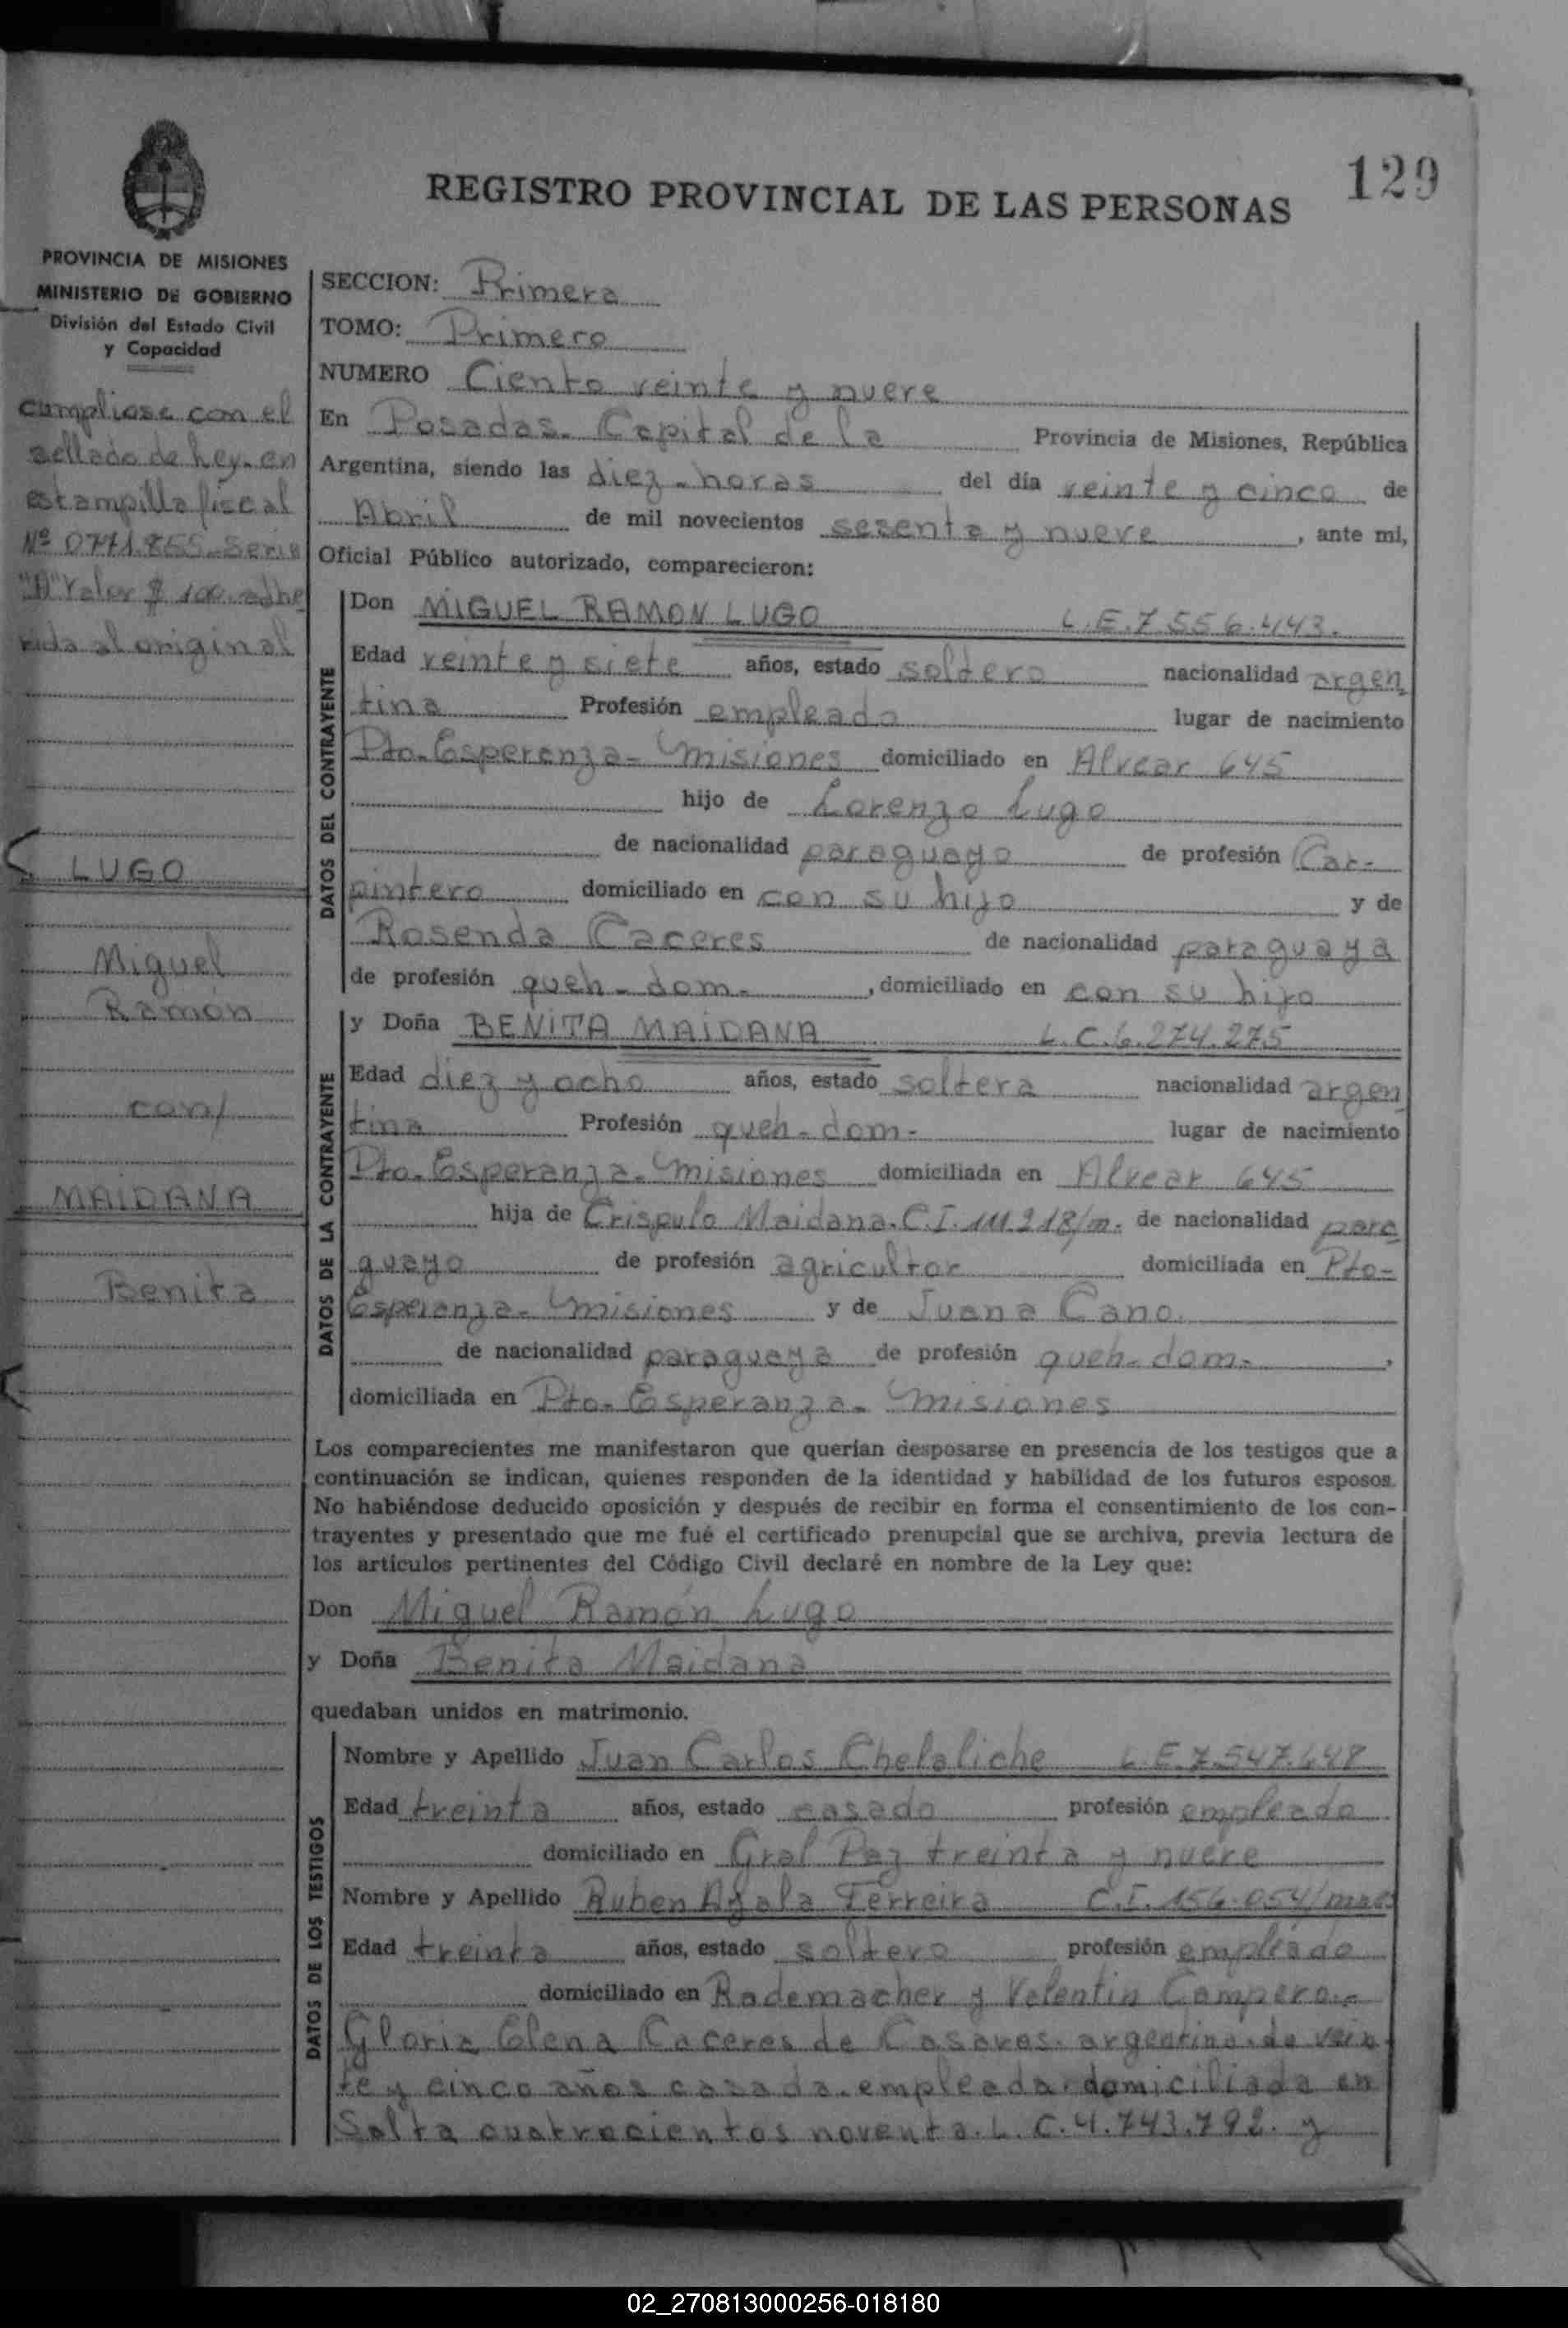 129
REGISTRO PROVINCIAL DE LAS PERSONAS
PROVINCIA DE MISIONES
MINISTERIO DE GOBIERNO
División del Estado Civil
y Capacidad
cumpliose con el
sellado de ley. en
estampilla fiscal
Nº 0771.855 Serie
"A" Valor $ 100. adhe
rida al original
LUGO
Miguel
Ramón
con/
MAIDANA
Benita
SECCION: Primera
TOMO: Primero
NUMERO Ciento veinte y nueve
En Posadas. Capital de la Provincia de Misiones, República
Argentina, siendo las diez horas del día veinte y cinco de
Abril de mil novecientos sesenta y nueve, ante mi,
Oficial Público autorizado, comparecieron:
DATOS DEL CONTRAYENTE
Don MIGUEL RAMON LUGO L.E.7.556.443.
Edad veinte y siete años, estado soltero nacionalidad argen
tina Profesión empleado lugar de nacimiento
Pto. Esperanza - Misiones domiciliado en Alvear 645
hijo de Lorenzo Lugo
de nacionalidad paraguayo de profesión Car-
pintero domiciliado en con su hijo y de
Rosenda Caceres de nacionalidad paraguaya
de profesión queh-dom-, domiciliado en con su hijo
DATOS DE LA CONTRAYENTE
y Doña BENITA MAIDANA L.C.6.274.275
Edad diez y ocho años, estado soltera nacionalidad argen
tina Profesión queh-dom- lugar de nacimiento
Pto. Esperanza - Misiones domiciliada en Alvear 645
hija de Crispulo Maidana. C.I. 111.218/m. de nacionalidad para
guayo de profesión agricultor domiciliada en Pto-
Esperanza - Misiones y de Juana Cano.
de nacionalidad paraguaya de profesión queh-dom-,
domiciliada en Pto. Esperanza - Misiones
Los comparecientes me manifestaron que querían desposarse en presencia de los testigos que a
continuación se indican, quienes responden de la identidad y habilidad de los futuros esposos.
No habiéndose deducido oposición y después de recibir en forma el consentimiento de los con-
trayentes y presentado que me fué el certificado prenupcial que se archiva, previa lectura de
los artículos pertinentes del Código Civil declaré en nombre de la Ley que:
Don Miguel Ramón Lugo
y Doña Benita Maidana
quedaban unidos en matrimonio.
DATOS DE LOS TESTIGOS
Nombre y Apellido Juan Carlos Chelaliche L.E.7.547.648
Edad treinta años, estado casado profesión empleado
domiciliado en Gral Paz treinta y nueve
Nombre y Apellido Ruben Ayala Ferreira C.I. 156.054/mnes
Edad treinta años, estado soltero profesión empleado
domiciliado en Rademacher y Valentin Campero.-
Gloria Elena Caceres de Casares. argentina. de vein
te y cinco años casada. empleada. domiciliada en
Salta cuatrocientos noventa. L.C.4.743.792. y
02_270813000256-018180